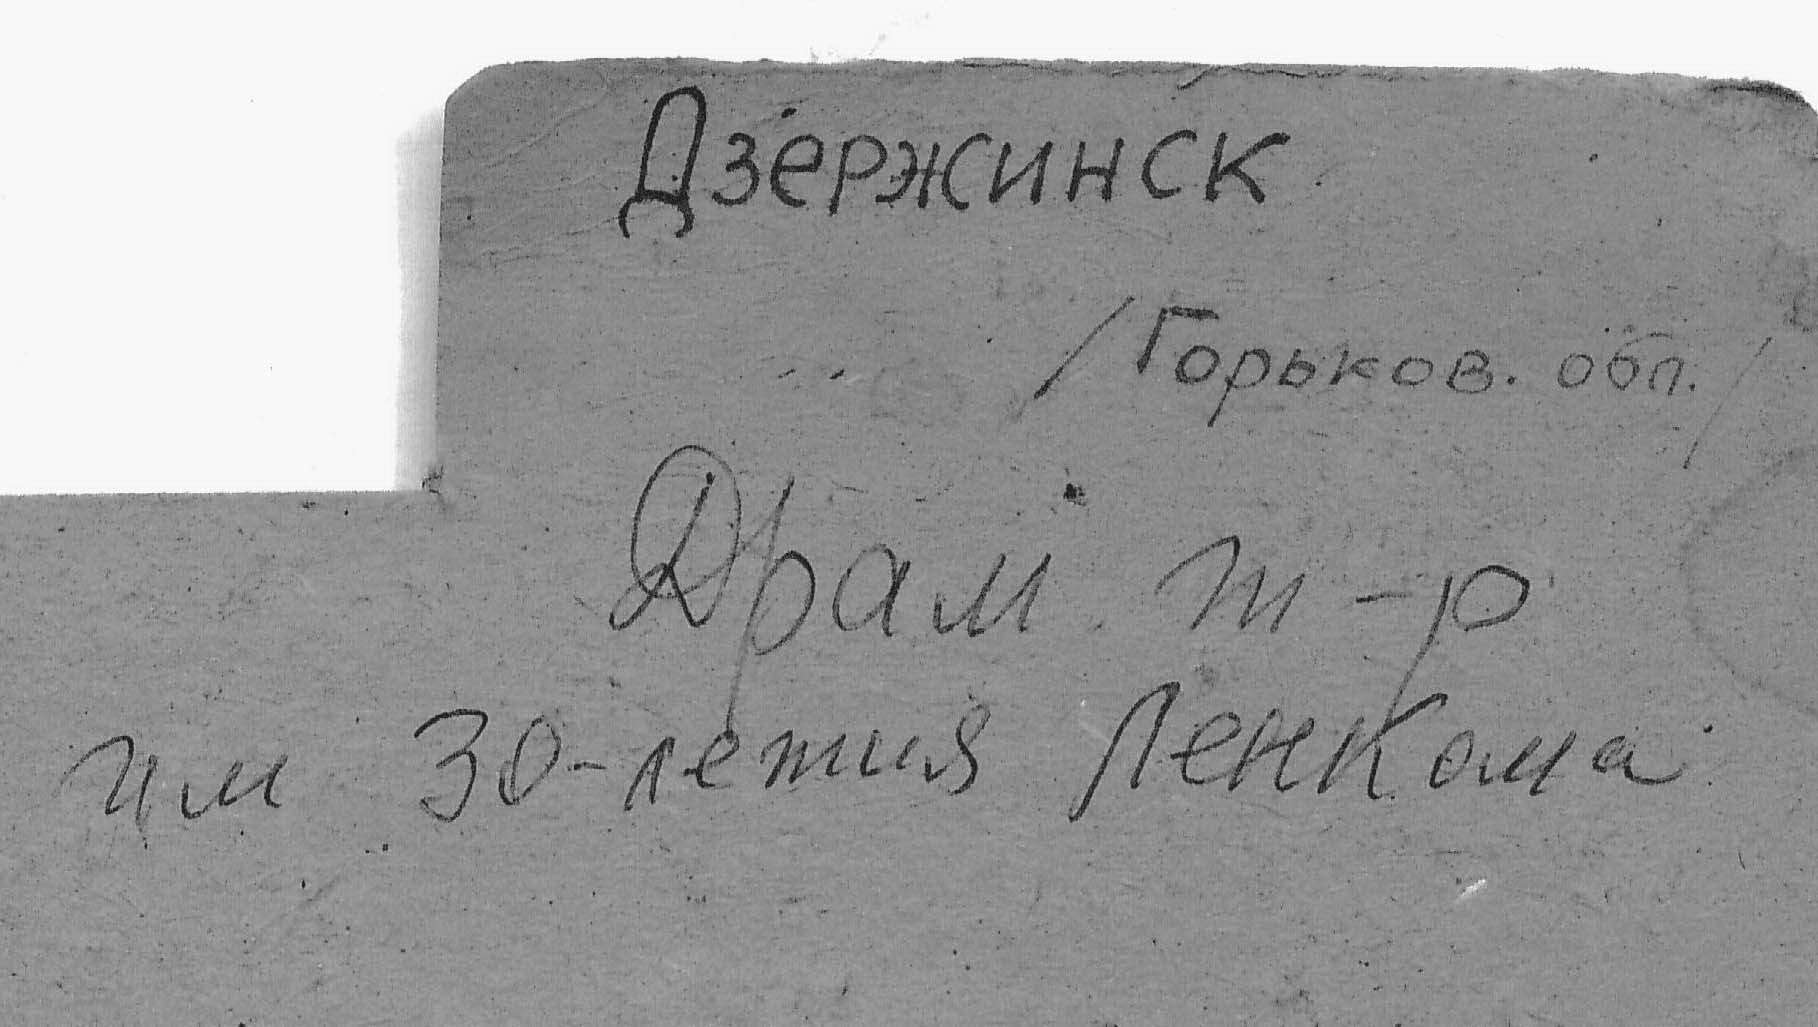 Дзержинск
/Горьков. обл./
Драм. т-р
им 30-летия Ленкома